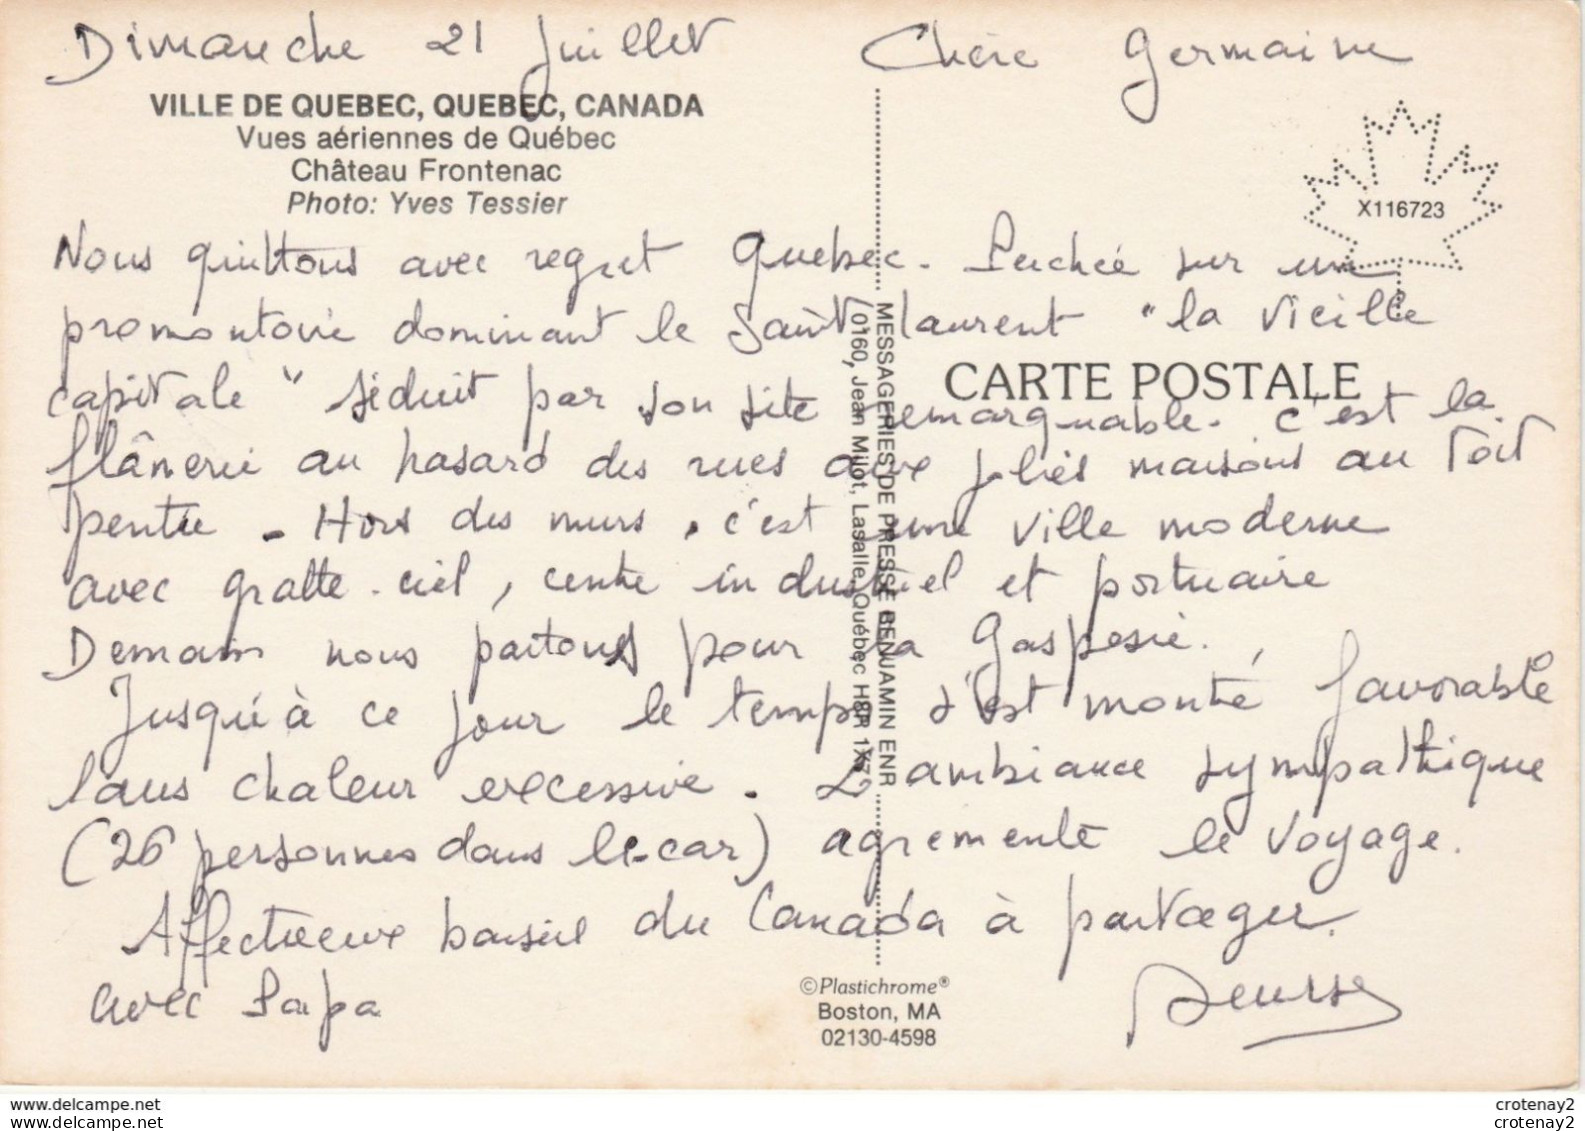 Dimanche 21 juillet Chère Germaine
VILLE DE QUEBEC, QUEBEC, CANADA
Vues aériennes de Québec
Château Frontenac
Photo: Yves Tessier
X116723
Nous quittons avec regret Quebec. Perchée sur un
promontoire dominant le Saint laurent "la vieille
capitale" séduit par son site remarquable. C'est la
flânerie au hasard des rues aux jolies maisons au toit
pentu. Hors des murs, c'est une ville moderne
avec gratte-ciel, centre industriel et portuaire
Demain nous partons pour la Gaspesie.
Jusqu'à ce jour le temps s'est montré favorable
sans chaleur excessive. L'ambiance sympathique
(26 personnes dans le car) agremente le voyage.
Affectueux baiser du Canada à partager
avec Papa
CARTE POSTALE
MESSAGERIES DE PRESSE BENJAMIN ENR
0160, Jean Milot, Lasalle, Québec H8R 1X7
©Plastichrome®
Boston, MA
02130-4598
crotenay2 crotenay2
crotenay2 crotenay2